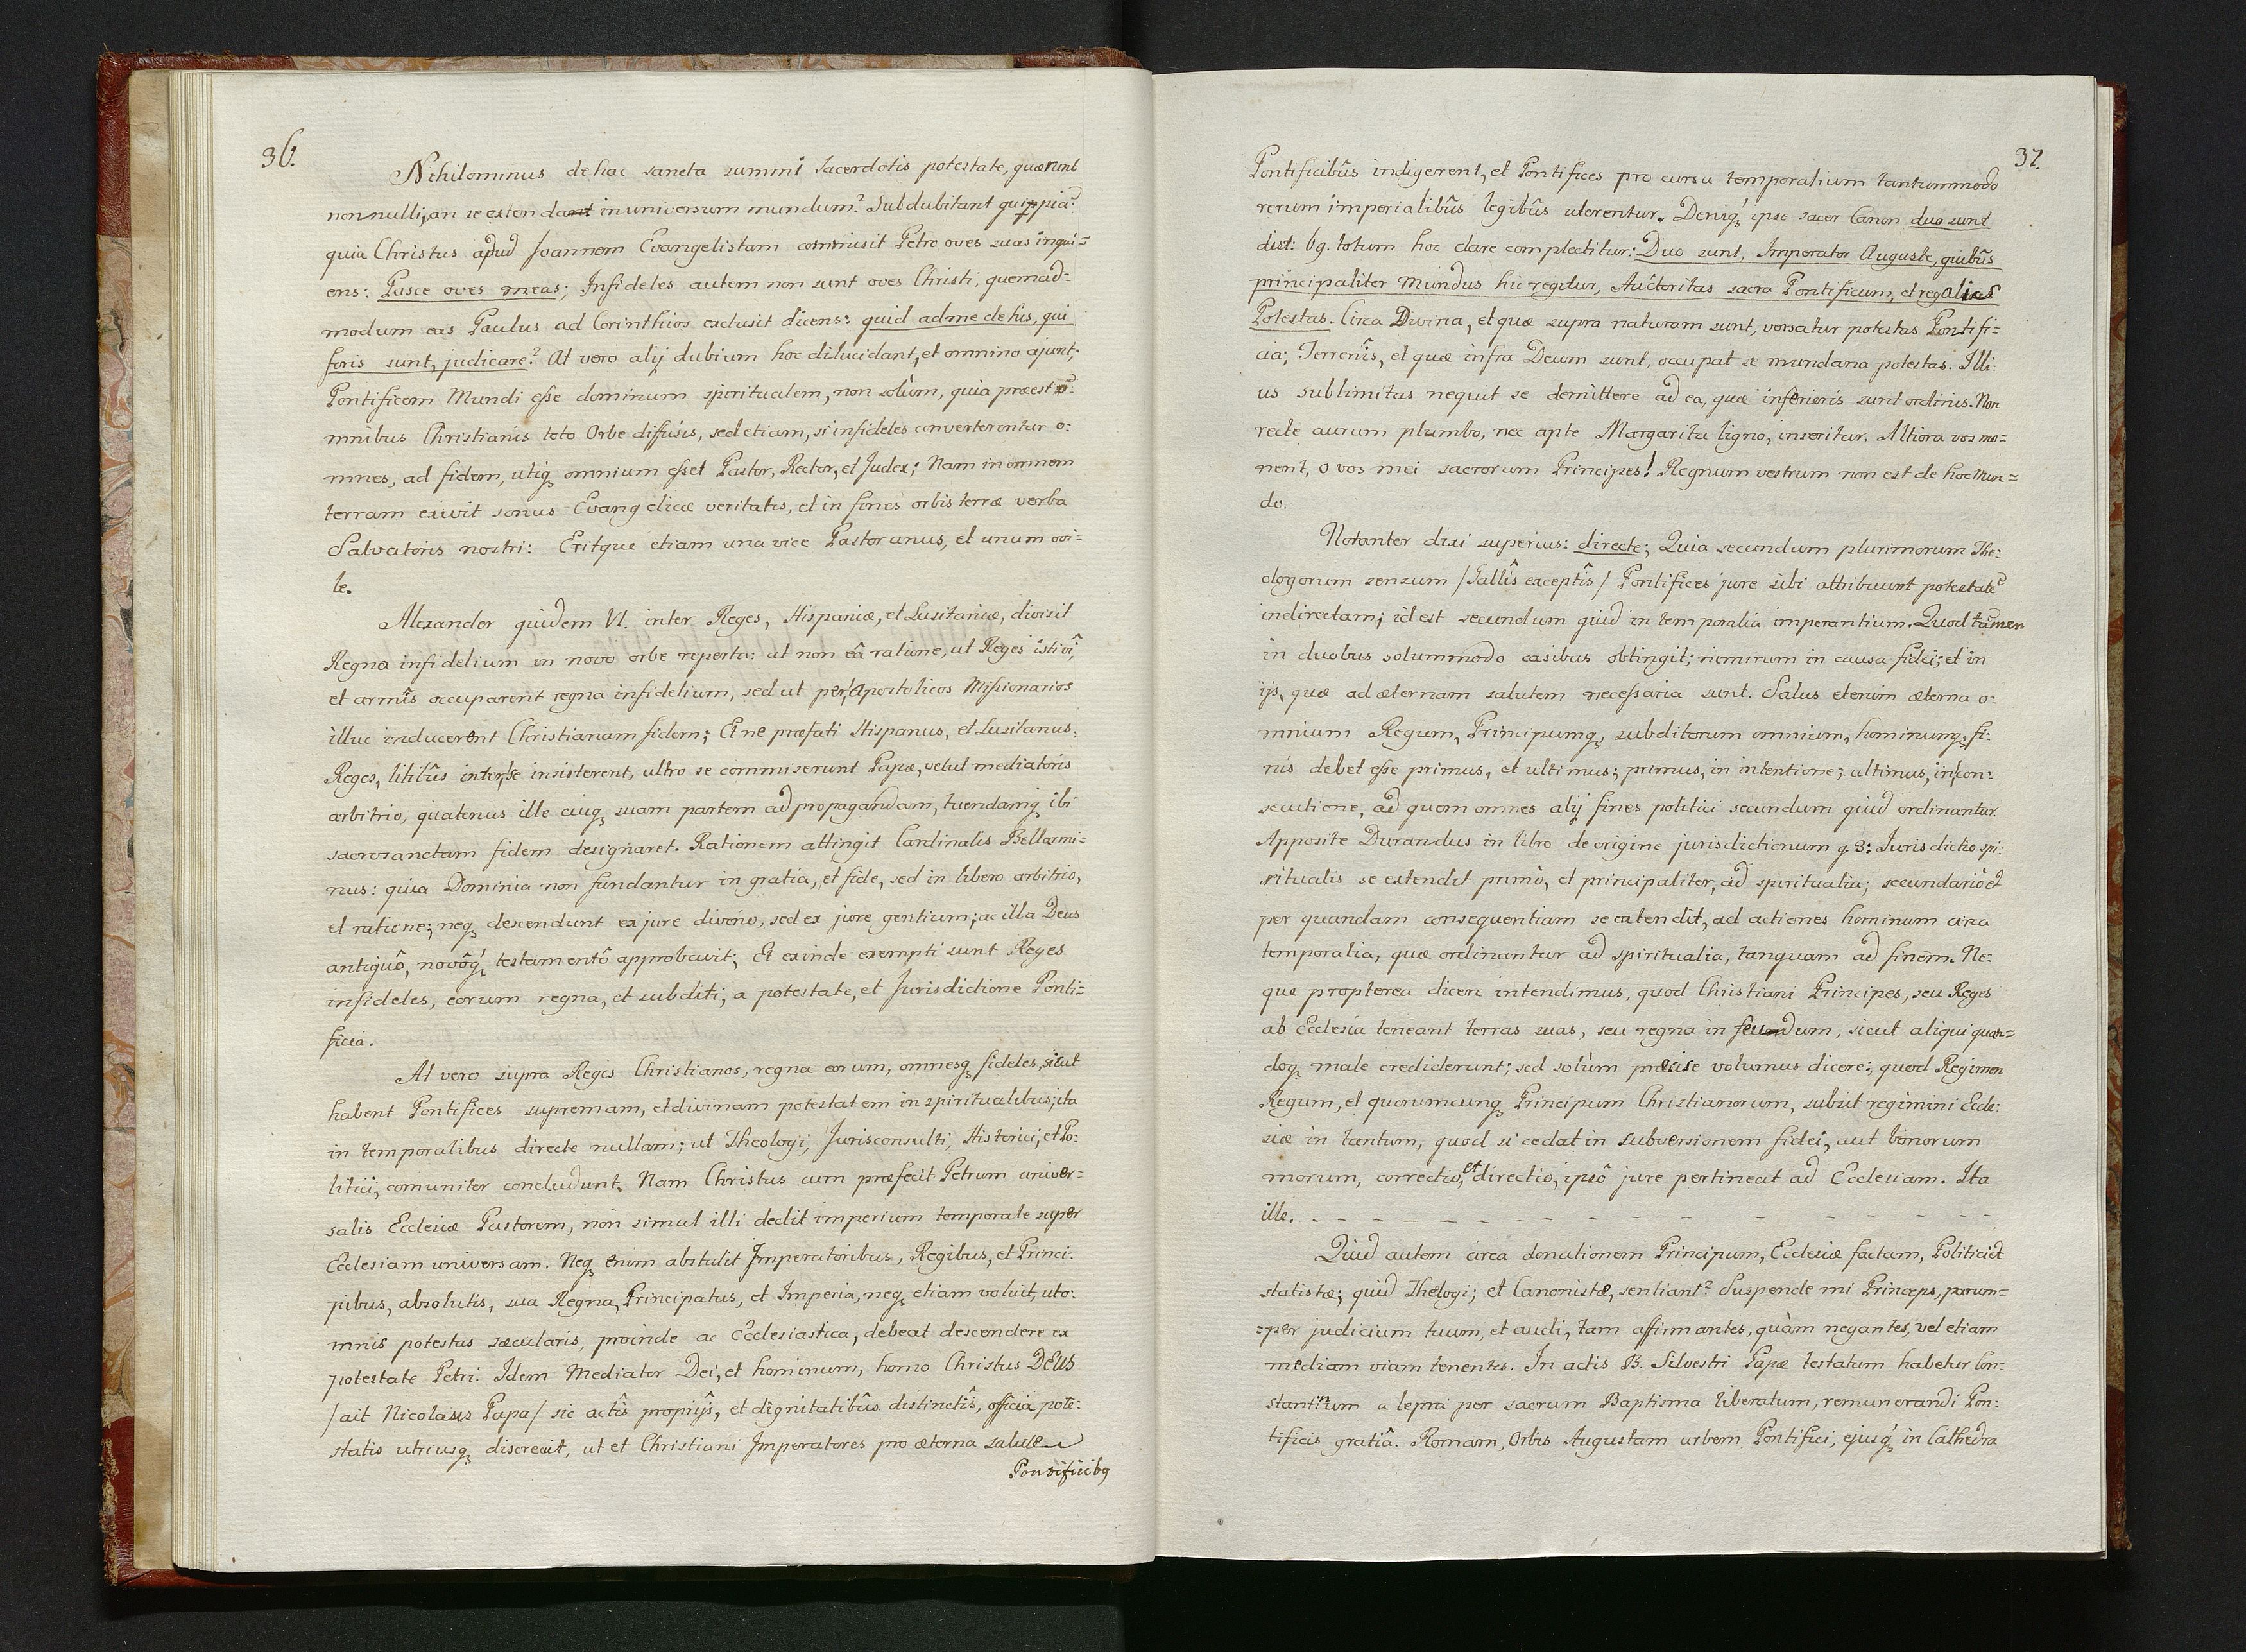 36.
Nihilominus de hac sancta summi Sacerdotis potestate, quærunt
nonnulli, an se extendant in universum mundum? Subdubitant quippiã:
quia Christus apud Joannem Evangelistam commisit Petro oves suas inqui=
ens: Pasce oves meas; Infideles autem non sunt oves Christi, quemad=
modum eas Paulus ad Corinthios exclusit dicens: quid ad me de his, qui
foris sunt, judicare? At vero alij dubium hoc dilucidant, et omnino ajunt;
Pontificem Mundi esse dominum spiritualem, non solùm, quia præest o=
mnibus Christianis toto Orbe diffusis, sed etiam, si infideles converterentur o:
mnes, ad fidem, utiq₃ omnium esset Pastor, Rector, et Judex; Nam in omnem
terram exivit sonus Evangelicæ veritatis, et in fines orbis terræ verba
Salvatoris nostri: Eritque etiam una vice Pastor unus, et unum ovi=
le.
Alexander quidem VI. inter Reges, Hispaniæ, et Lusitaniæ, divisit
Regna infidelium in novo orbe reperta: at non eâ ratione, ut Reges isti vî,
et armîs occuparent regna infidelium, sed ut per Apostolicos Missionarios
illuc inducerent Christianam fidem; Et ne præfati Hispanus, et Lusitanus,
Reges, litibûs inter se insisterent, ultro se commiserunt Papæ, velut mediatoris
arbitrio, quatenus ille cuiq₃ suam partem ad propagandam, tuendamq₃ ibi
sacrosanctam fidem designaret. Rationem attingit Cardinalis Bellarmi=
nus: quia Dominia non fundantur in gratia, et fide, sed in libero arbitrio,
et ratione; neq₃ descendunt ex jure divino, sed ex jure gentium; ac illa Deus
antiquô, novôq₃ testamentô approbavit; Et exinde exempti sunt Reges
infideles, eorum regna, et subditi, a potestate, et Jurisdictione Ponti=
ficia.
At vero supra Reges Christianos, regna eorum, omnesq₃ fideles, sicut
habent Pontifices supremam, et divinam potestatem in spiritualibus; ita
in temporalibus directe nullam; ut Theologi, Jurisconsulti, Historici, et Po:
litici, comuniter concludunt. Nam Christus cum præfecit Petrum univer=
salis Ecclesiæ Pastorem, non simul illi dedit imperium temporale super
Ecclesiam universam. Neq₃ enim abstulit Imperatoribus, Regibus, et Princi:
pibus, absolutis, sua Regna, Principatus, et Imperia, neq₃ etiam voluit, ut o:
mnis potestas sæcularis, proinde ac Ecclesiastica, debeat descendere ex
potestate Petri. Idem Mediator Dei, et hominum, homo Christus DEUS
/ait Nicolaus Papa/ sic actîs proprijs, et dignitatibûs distinctîs, officia pote:
statis utriusq₃ discrevit, ut et Christiani Imperatores pro æterna salute
Pontificib9
37.
Pontificibûs indigerent, et Pontifices pro cursu temporalium tantummodo
rerum imperialibûs legibûs uterentur. Deniq₃ ipse sacer Canon duo sunt
dist: 69. totum hoc clare complectitur: Duo sunt, Imperator Auguste, quibûs
principaliter Mundus hic regitur, Auctoritas sacra Pontificum, et regalies
Potestas. Circa Divina, et quæ supra naturam sunt, versatur potestas Pontifi=
cia; Terrenîs, et quæ infra Deum sunt, occupat se mundana potestas. Illi:
us sublimitas nequit se demittere ad ea, quæ inferioris sunt ordinis. Non
recte aurum plumbo, nec apte Margarita ligno, inseritur. Altiora vos mo=
nent, o vos mei sacrorum Principes! Regnum vestrum non est de hoc Mun=
do.
Notanter dixi superius: directe; Quia secundum plurimorum The:
ologorum sensum /Gallîs exceptîs/ Pontifices jure sibi attribuunt potestatẽ
indirectam; id est secundum quid in temporalia imperantium. Quod tamen
in duobus solummodo casibus obtingit; nimirum in causa fidei; et in
ijs, quæ ad æternam salutem necessaria sunt. Salus etenim æterna o:
mnium Regum, Principumq₃, subditorum omnium, hominumq₃, fi:
nis debet esse primus, et ultimus; primus, in intentione; ultimus, in con:
secutione, ad quem omnes alij fines politici secundum quid ordinantur.
Apposite Durandus in libro de origine jurisdictionum q. 3: Jurisdictio spi:
ritualis se extendit primò, et principaliter, ad spiritualia; secundariò et
per quandam consequentiam se extendit, ad actiones hominum circa
temporalia, quæ ordinantur ad spiritualia, tanquam ad finem. Ne:
que propterea dicere intendimus, quod Christiani Principes, seu Reges
ab Ecclesia teneant terras suas, seu regna in feudum, sicut aliqui quan=
doq₃ male crediderunt; sed solùm præcise volumus dicere:, quod Regimen
Regum, et quorumcunq₃ Principum Christianorum, subsit regimini Eccle:
siæ in tantum, quod si cedat in subversionem fidei, aut bonorum
morum, correctio, et directio, ipsô jure pertineat ad Ecclesiam. Ita
ille. - - - - - - - - - - - - - - - -
Quid autem circa donationem Principum, Ecclesiæ factam, Politici et
statistæ; quid Theologi; et Canonistæ, sentiant? Suspende mi Princeps, parum=
=per judicium tuum, et audi, tam affirmantes, quàm negantes, vel etiam
mediam viam tenentes. In actis B. Silvestri Papæ testatum habetur Con:
stantinum a lepra per sacrum Baptisma liberatum, remunerandi Pon:
tificis gratiâ. Romam, Orbis Augustam urbem Pontifici, ejusq₃ in Cathedra